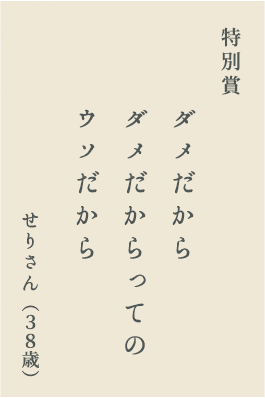 特別賞
ダメだから
ダメだからっての
ウソだから
せりさん（38歳）